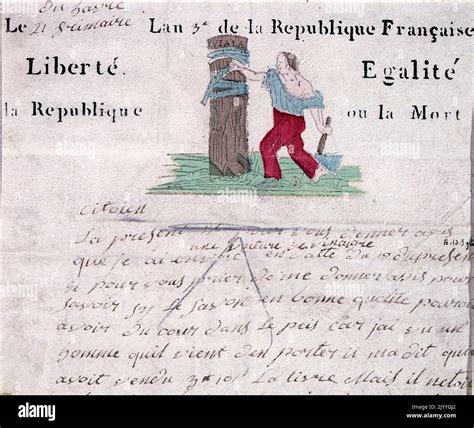 du havre
Le 21 frimaire Lan 3e de la Republique Française
Liberté. Egalité
la Republique ou la Mort
citoien
La presente est pour vous donner avis
une voiture de vinaigre
que je ai envoié en datte du 19 du present
je pour vous prier de me donner avis pour
savoir sy le savon en bonne qualité pouroit
avoir du cour dans le peis car jai vu un
homme quil vient den porter il ma dit quil
avoit vendu 3# 10s La livre Mais il netoit
alamy
Image ID: 2JYYGJ2
www.alamy.com